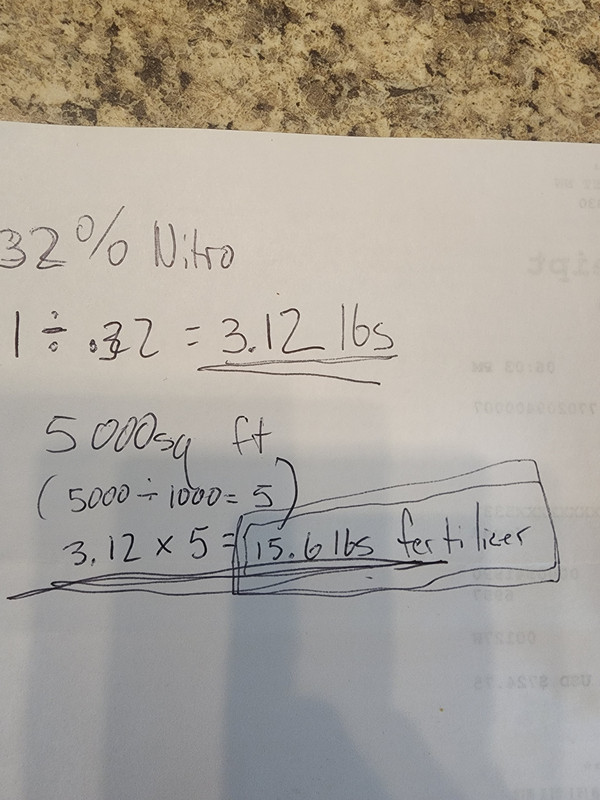 32% Nitro
1 ÷ .32 = 3.12 lbs
5000sq ft
(5000 ÷ 1000 = 5)
3.12 x 5 = 15.6 lbs fertilizer